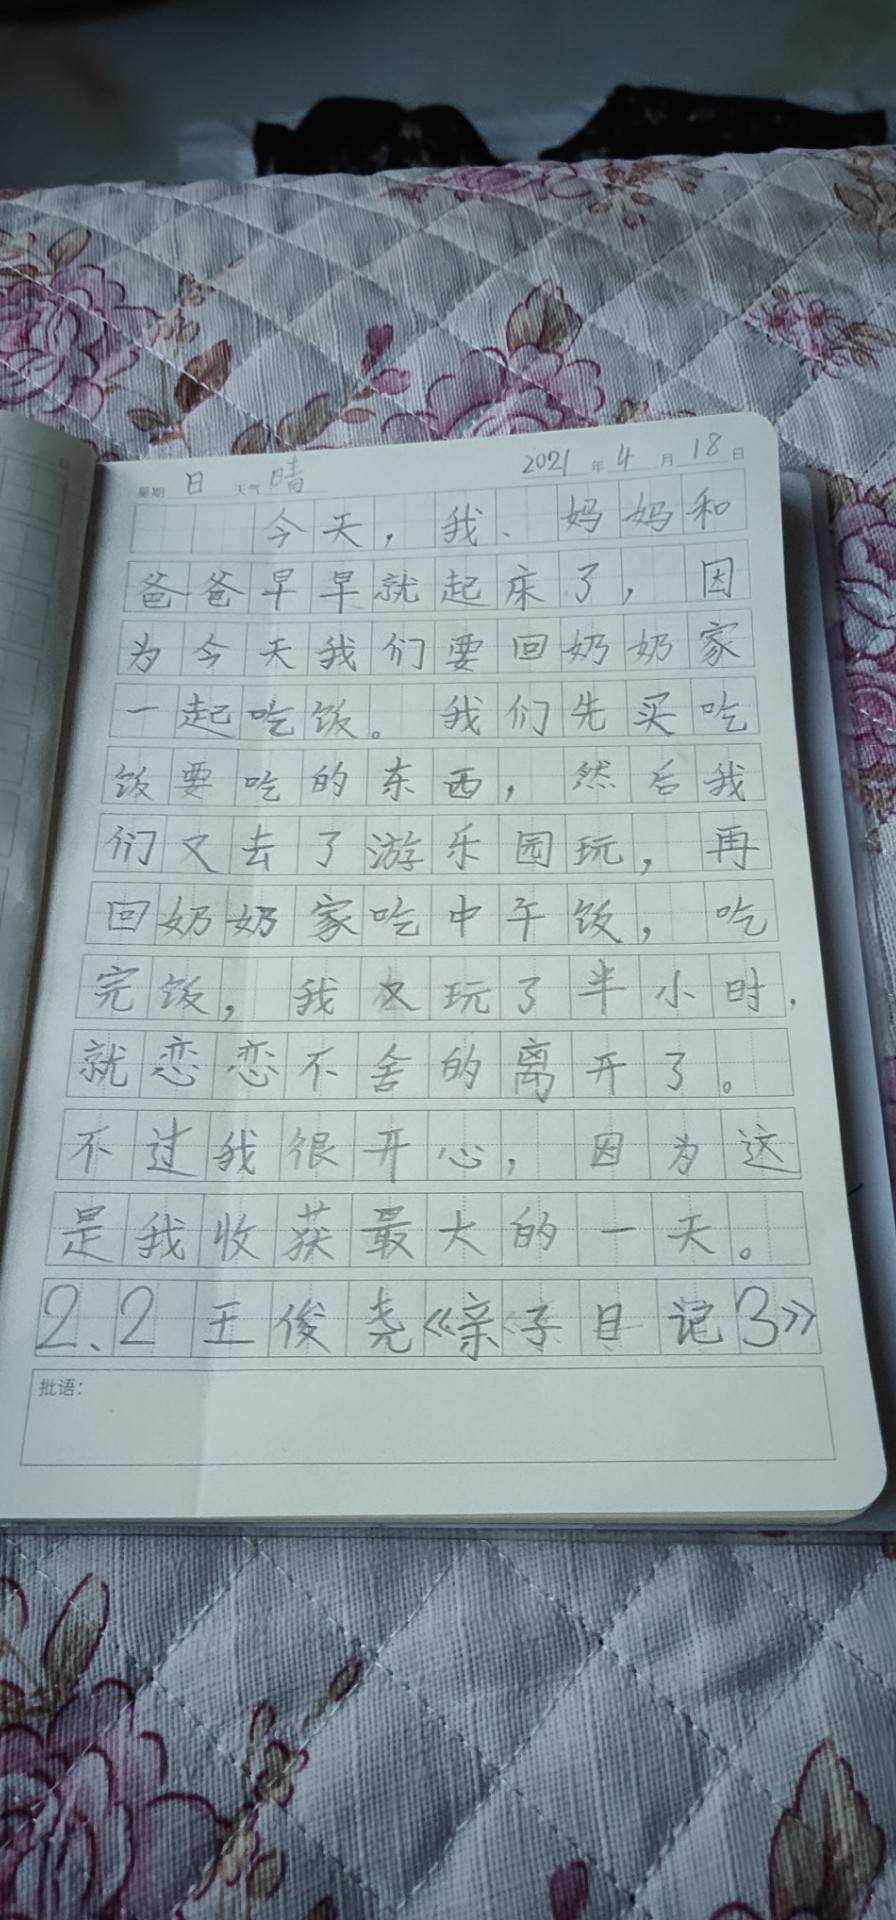 星期 日 天气 晴 2021 年 4 月 18 日
今天，我、妈妈和
爸爸早早就起床了，因
为今天我们要回奶奶家
一起吃饭。我们先买吃
饭要吃的东西，然后我
们又去了游乐园玩，再
回奶奶家吃中午饭，吃
完饭，我又玩了半小时，
就恋恋不舍的离开了。
不过我很开心，因为这
是我收获最大的一天。
2、2王俊尧《亲子日记3》
批语：